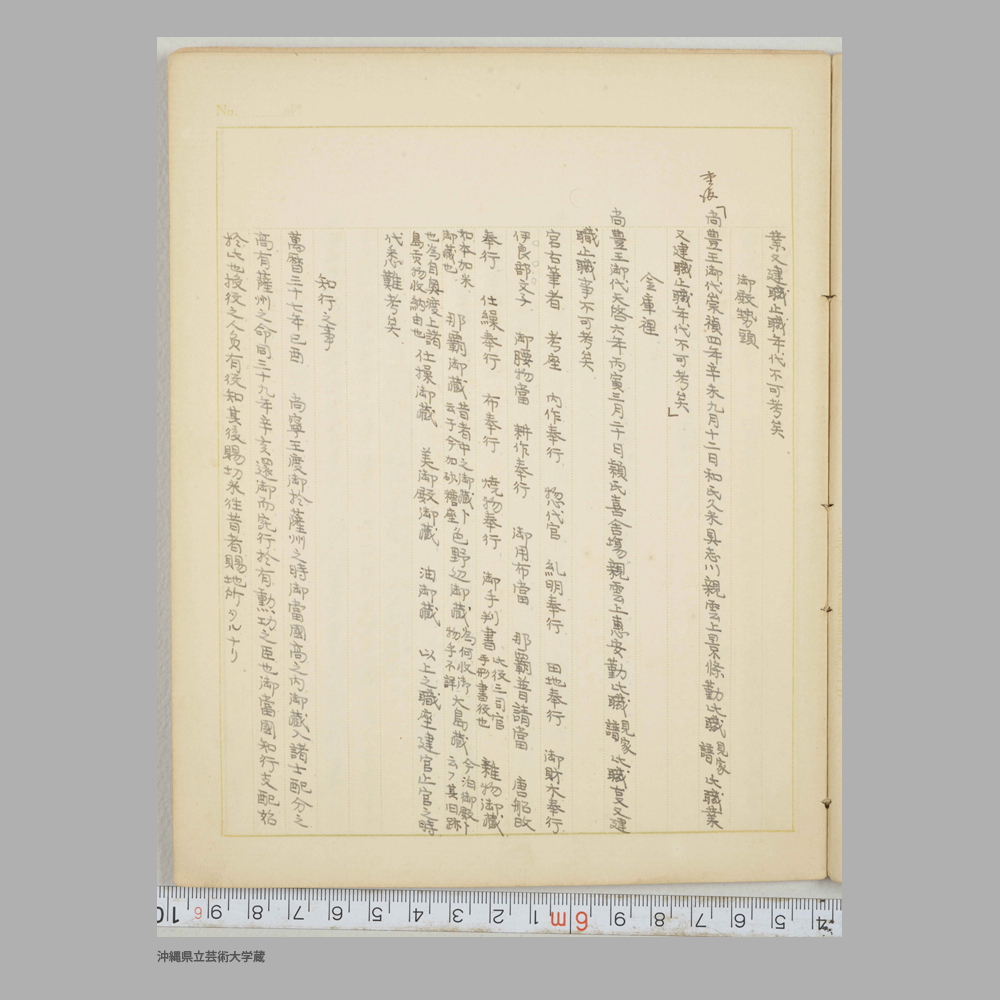 業又建職止職年代不可考矣
御殿勢頭
「尚豊王御代崇禎四年辛未九月十二日和氏久米具志川親雲上景條勤此職 見家譜 此職業
又建職止職年代不可考矣」
金庫裡
尚豊王御代天啓六年丙寅三月二十日頴氏喜舎場親雲上恵安勤此職 見家譜 此職亦又建
職止職事不可考矣
宮古筆者 考座 内作奉行 惣代官 糺明奉行 田地奉行 御財木奉行
伊良部文子 御腰物當 耕作奉行 御用布當 那覇普請當 唐船改
奉行 仕繰奉行 布奉行 焼物奉行 御手判書 此後三司官手形書後也 雑物御蔵
如本加米御蔵也 那覇御蔵 昔者中之御蔵ト云于今加砂糖座 色野辺御蔵 為何収御物乎不詳 大島蔵 今泊御殿ト云フ其旧跡
也為自奥渡上諸島貢物收納由也 仕操御蔵 美御殿御蔵 油御蔵 以上之職座建官止官之時
代悉難考矣
知行之事
萬暦三十七年己酉 尚寧王渡御於薩州之時御當國高之内御蔵入諸士配分之
高有薩州之命同三十九年辛亥還御而宛行於有勲功之臣也御當國知行支配始
於此也授役之人員有役知其後賜切米往昔者賜地所タルナリ
No.
沖縄県立芸術大学蔵